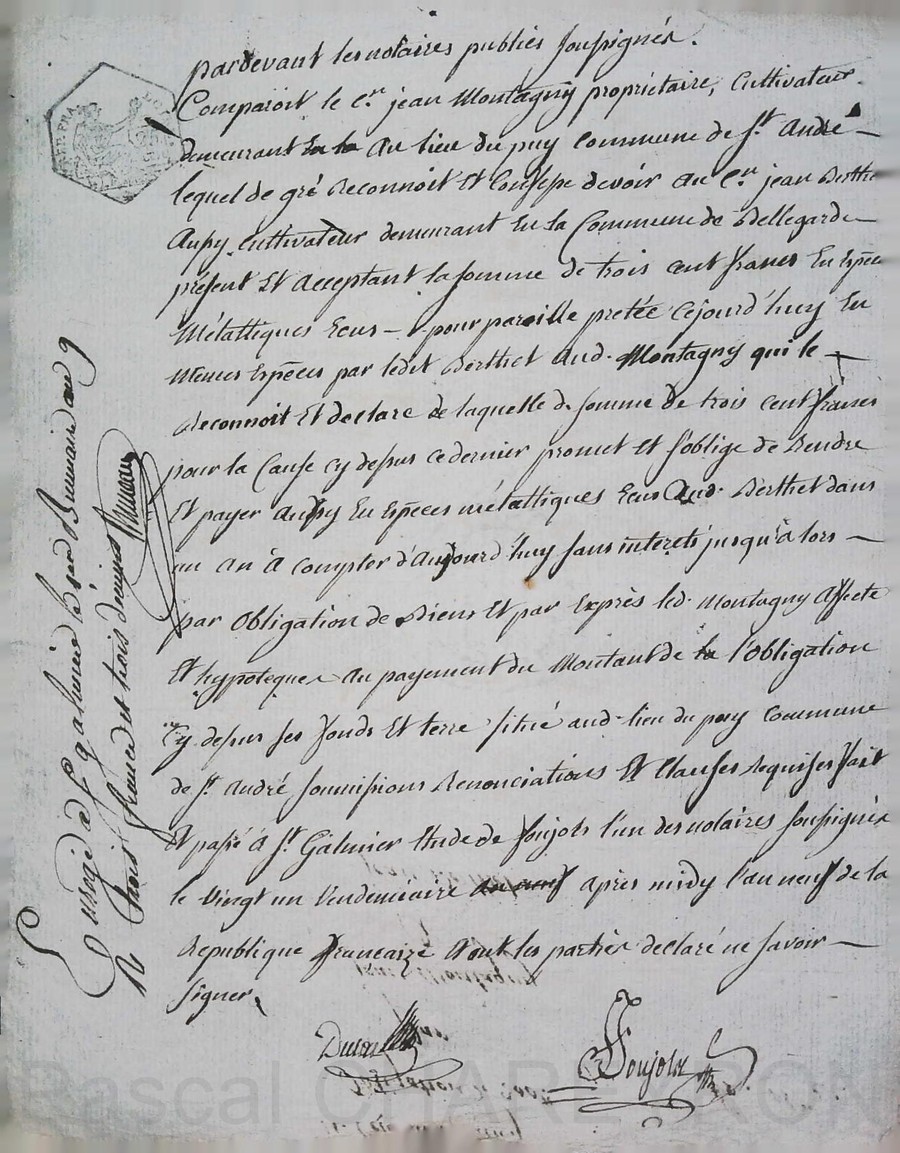 pardevant les notaires publics soussignés.
Comparoit le c.en jean Montagny propriétaire, Cultivateur
demeurant au lieu du puy commune de St. André —
lequel de gré reconnoit Et Confesse devoir au C.en jean Berthet
Aupy Cultivateur demeurant En la Commune de Bellegarde
présent Et acceptant la somme de trois cent francs En Espèces
Métalliques Ecus — pour pareille pretée Cejourd'huy En
memes Espèces par ledit Berthet aud. Montagny qui le —
reconnoit Et declare de laquelle d. somme de trois cent francs
pour la Cause cy dessus ce dernier promet Et s'oblige de Rendre
Et payer En Especes métalliques Ecus Aud. Berthet dans
un an à compter d'Aujourd'huy sans interets jusqu'à lors —
par obligation de Biens Et par Exprès led. Montagny Affecte
Et hypoteque au payement du Montant de l'obligation
Cy dessus ses fonds Et terre situé aud. lieu du puy commune
de St. André soumissions Renonciations Et Clauses Requises fait
Et passé à St. Galmier Etude de Soujols l'un des notaires soussignés
le Vingt un Vendemiaire après midy l'an neuf de la
Republique francaize dont les parties declaré ne savoir —
signer.
Soujols
Enregé à St galmier le Brumaire an 9
R trois francs et trois decimes
Pascal CHARETIRON